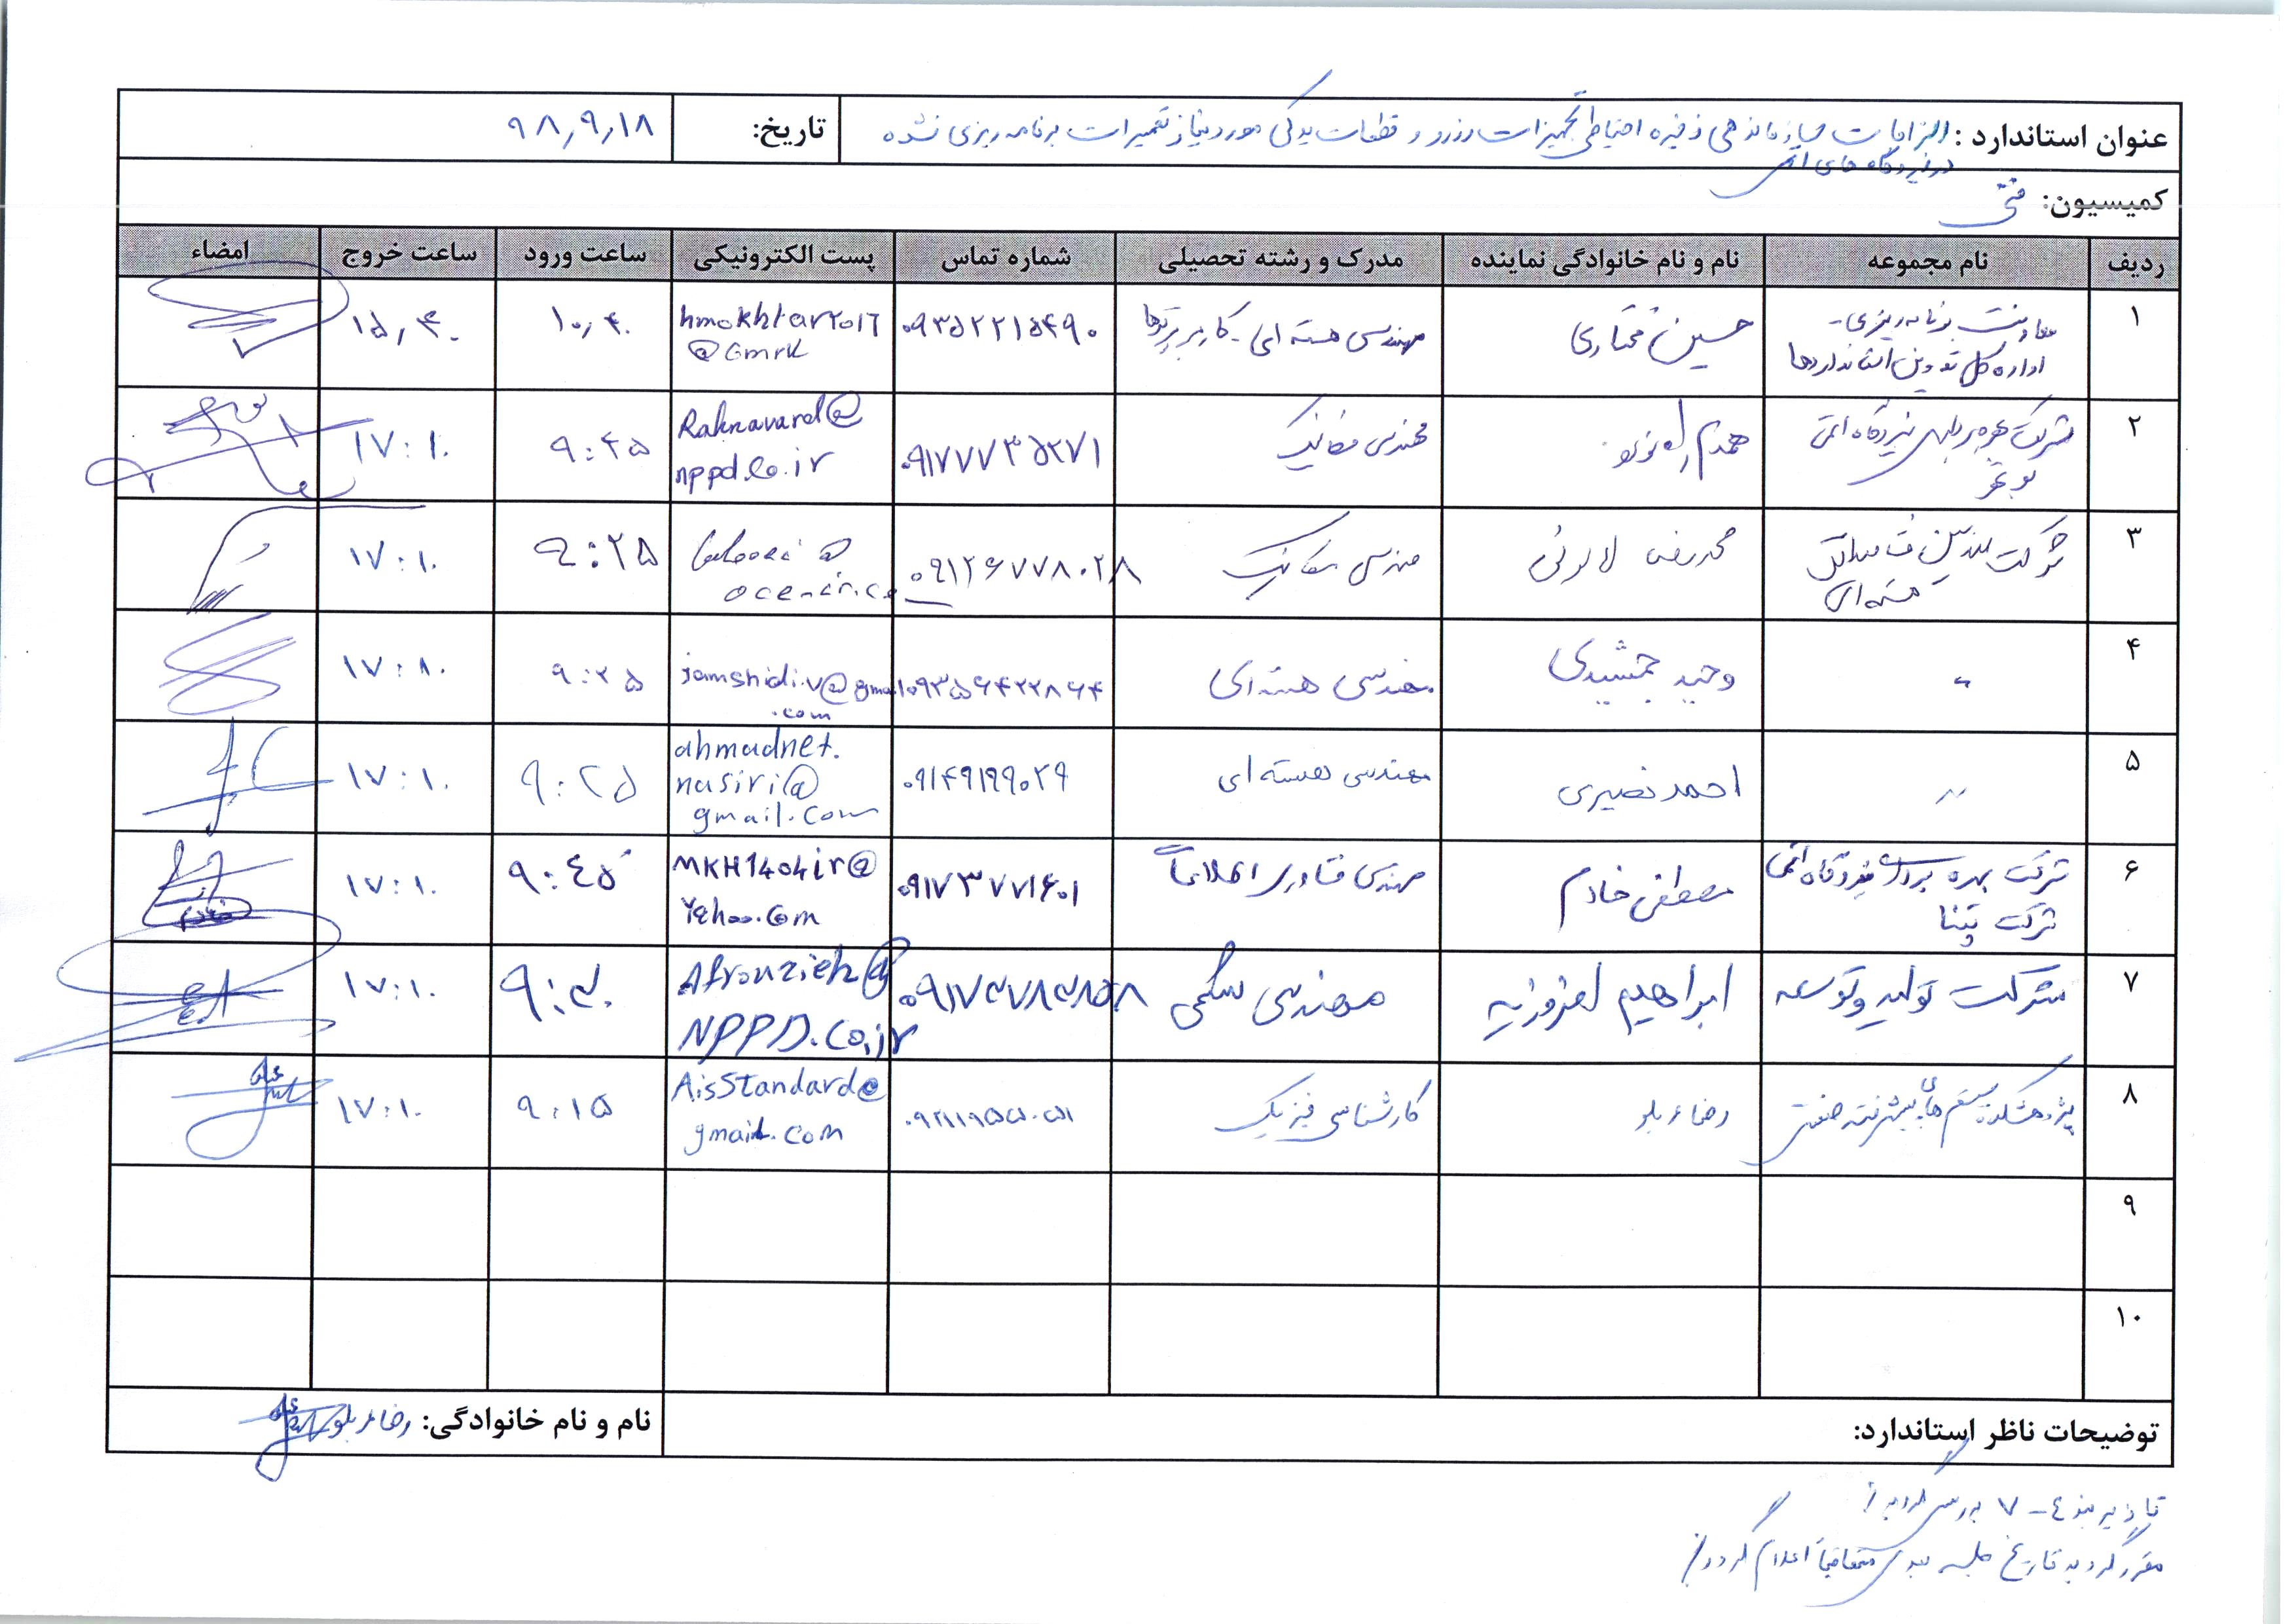 عنوان استاندارد: الزامات سازماندهی ذخیره احتیاطی تجهیزات رزرو و قطعات یدکی مورد نیاز تعمیرات برنامه ریزی نشده
در نیروگاه های اتمی
تاریخ: ۹۸,۹,۱۸
کمیسیون: فنی
ردیف نام مجموعه نام و نام خانوادگی نماینده مدرک و رشته تحصیلی شماره تماس پست الکترونیکی ساعت ورود ساعت خروج امضاء
۱ معاونت برنامه ریزی - حسین مختاری مهندسی هسته ای - کاربرد پرتوها ۰۹۳۵۲۲۱۵۴۹۰ hmokhtar2017 ۱۰,۴۰ ۱۵,۴۰
اداره کل تدوین استانداردها @Gmail
۲ شرکت بهره برداری نیروگاه اتمی مهندسی مکانیک ۰۹۱۷۷۷۳۵۲۷۱ Rahnavard@ ۹:۴۵ ۱۷:۱۰
بوشهر nppd.co.ir
۳ شرکت محمدرضا لالوئی مهندسی مکانیک ۰۹۱۲۶۷۷۸۰۲۸ ۹:۲۵ ۱۷:۱۰
هسته ای
۴ " وحید جمشیدی مهندسی هسته ای ۰۹۳۵۶۴۲۲۸۶۴ jamshidi.v@gmail ۹:۲۵ ۱۷:۱۰
.com
۵ " احمد نصیری مهندسی هسته ای ۰۹۱۴۹۱۹۹۰۲۹ ahmadnet. ۹:۲۵ ۱۷:۱۰
nasiri@
gmail.com
۶ شرکت بهره برداری نیروگاه اتمی مصطفی خادم مهندسی فناوری اطلاعات ۰۹۱۷۳۷۷۱۶۰۱ MKH1404ir@ ۹:٤۵ ۱۷:۱۰
شرکت تپنا Yahoo.com
۷ شرکت تولید و توسعه ابراهیم افروزیه مهندسی شیمی Afrouzieh@ ۹:۴۰ ۱۷:۱۰
NPPD.co.ir
۸ پژوهشکده سیستم های پیشرفته صنعتی رضا عربلو کارشناسی فیزیک AisStandard@ ۹:۱۵ ۱۷:۱۰
gmail.com
۹
۱۰
توضیحات ناظر استاندارد: نام و نام خانوادگی: رضا عربلو
تا زیر بند ٤-۷ بررسی گردید.
مقرر گردید تاریخ جلسه بعدی متعاقباً اعلام گردد.